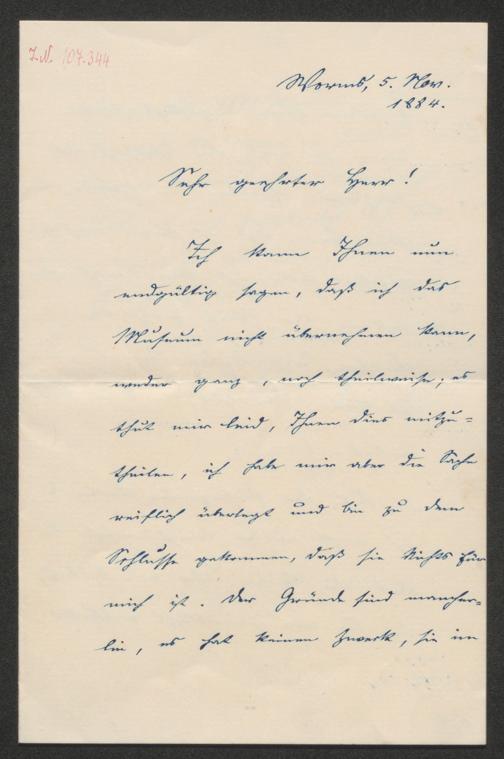 I.N. 107.344
Worms, 5. Nov.
1884.
Sehr geehrter Herr!
Ich kann Ihnen nun
endgültig sagen, daß ich das
Museum nicht übernehmen kann,
weder ganz, noch theilweise; es
thut mir leid, Ihnen dies mitzu=
theilen, ich habe mir aber die Sache
reiflich überlegt und bin zu dem
Schlusse gekommen, daß sie Nichts für
mich ist. Der Gründe sind mancher=
lei, es hat keinen Zweck, sie im